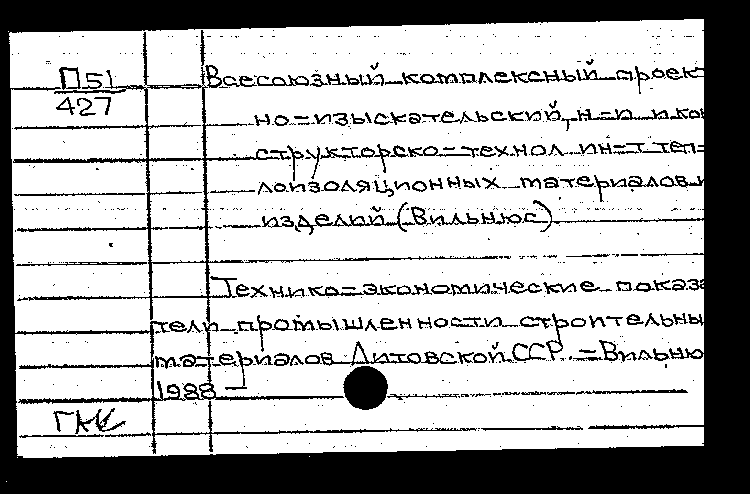 П51 Всесоюзный комплексный проект
427 но-изыскательский, н-и и кон
структорско-технол ин-т теп-
лоизоляционных материалов и
изделий (Вильнюс)
Технико-экономические показа
тели промышленности строительны
материалов Литовской ССР. - Вильню
1988 -
ГКК